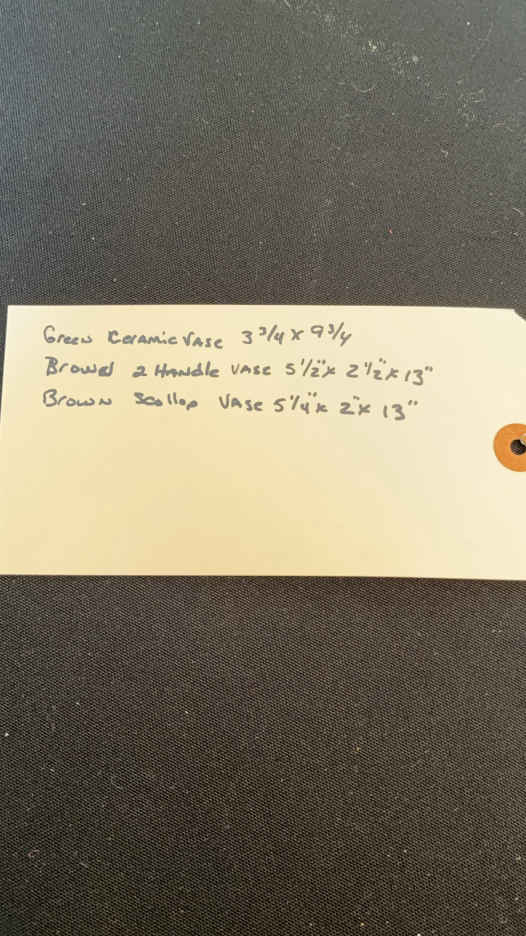 Green Ceramic Vase 3 3/4 x 9 3/4
Browd 2 Handle Vase 5 1/2" x 2 1/2" x 13"
Brown Scollop Vase 5 1/4" x 2" x 13"